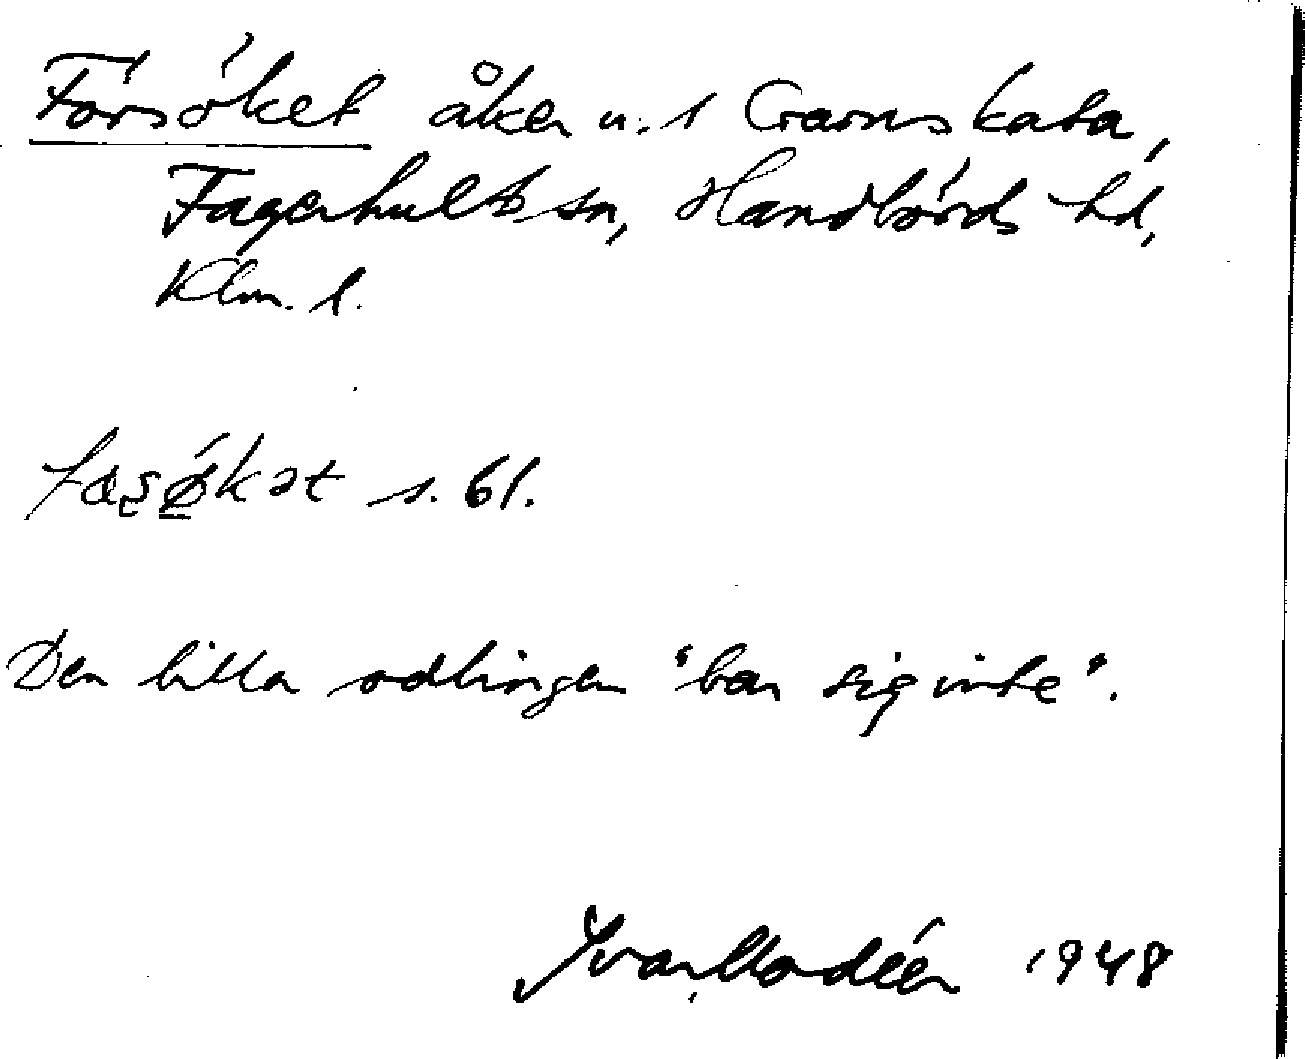 Försöket åker u. 1 Garnskata,
Fagerhults sn, Handbörds hd,
Klm. l.
s. 61.
Den lilla odlingen "bar sig inte".
Ivar Modéer 1948